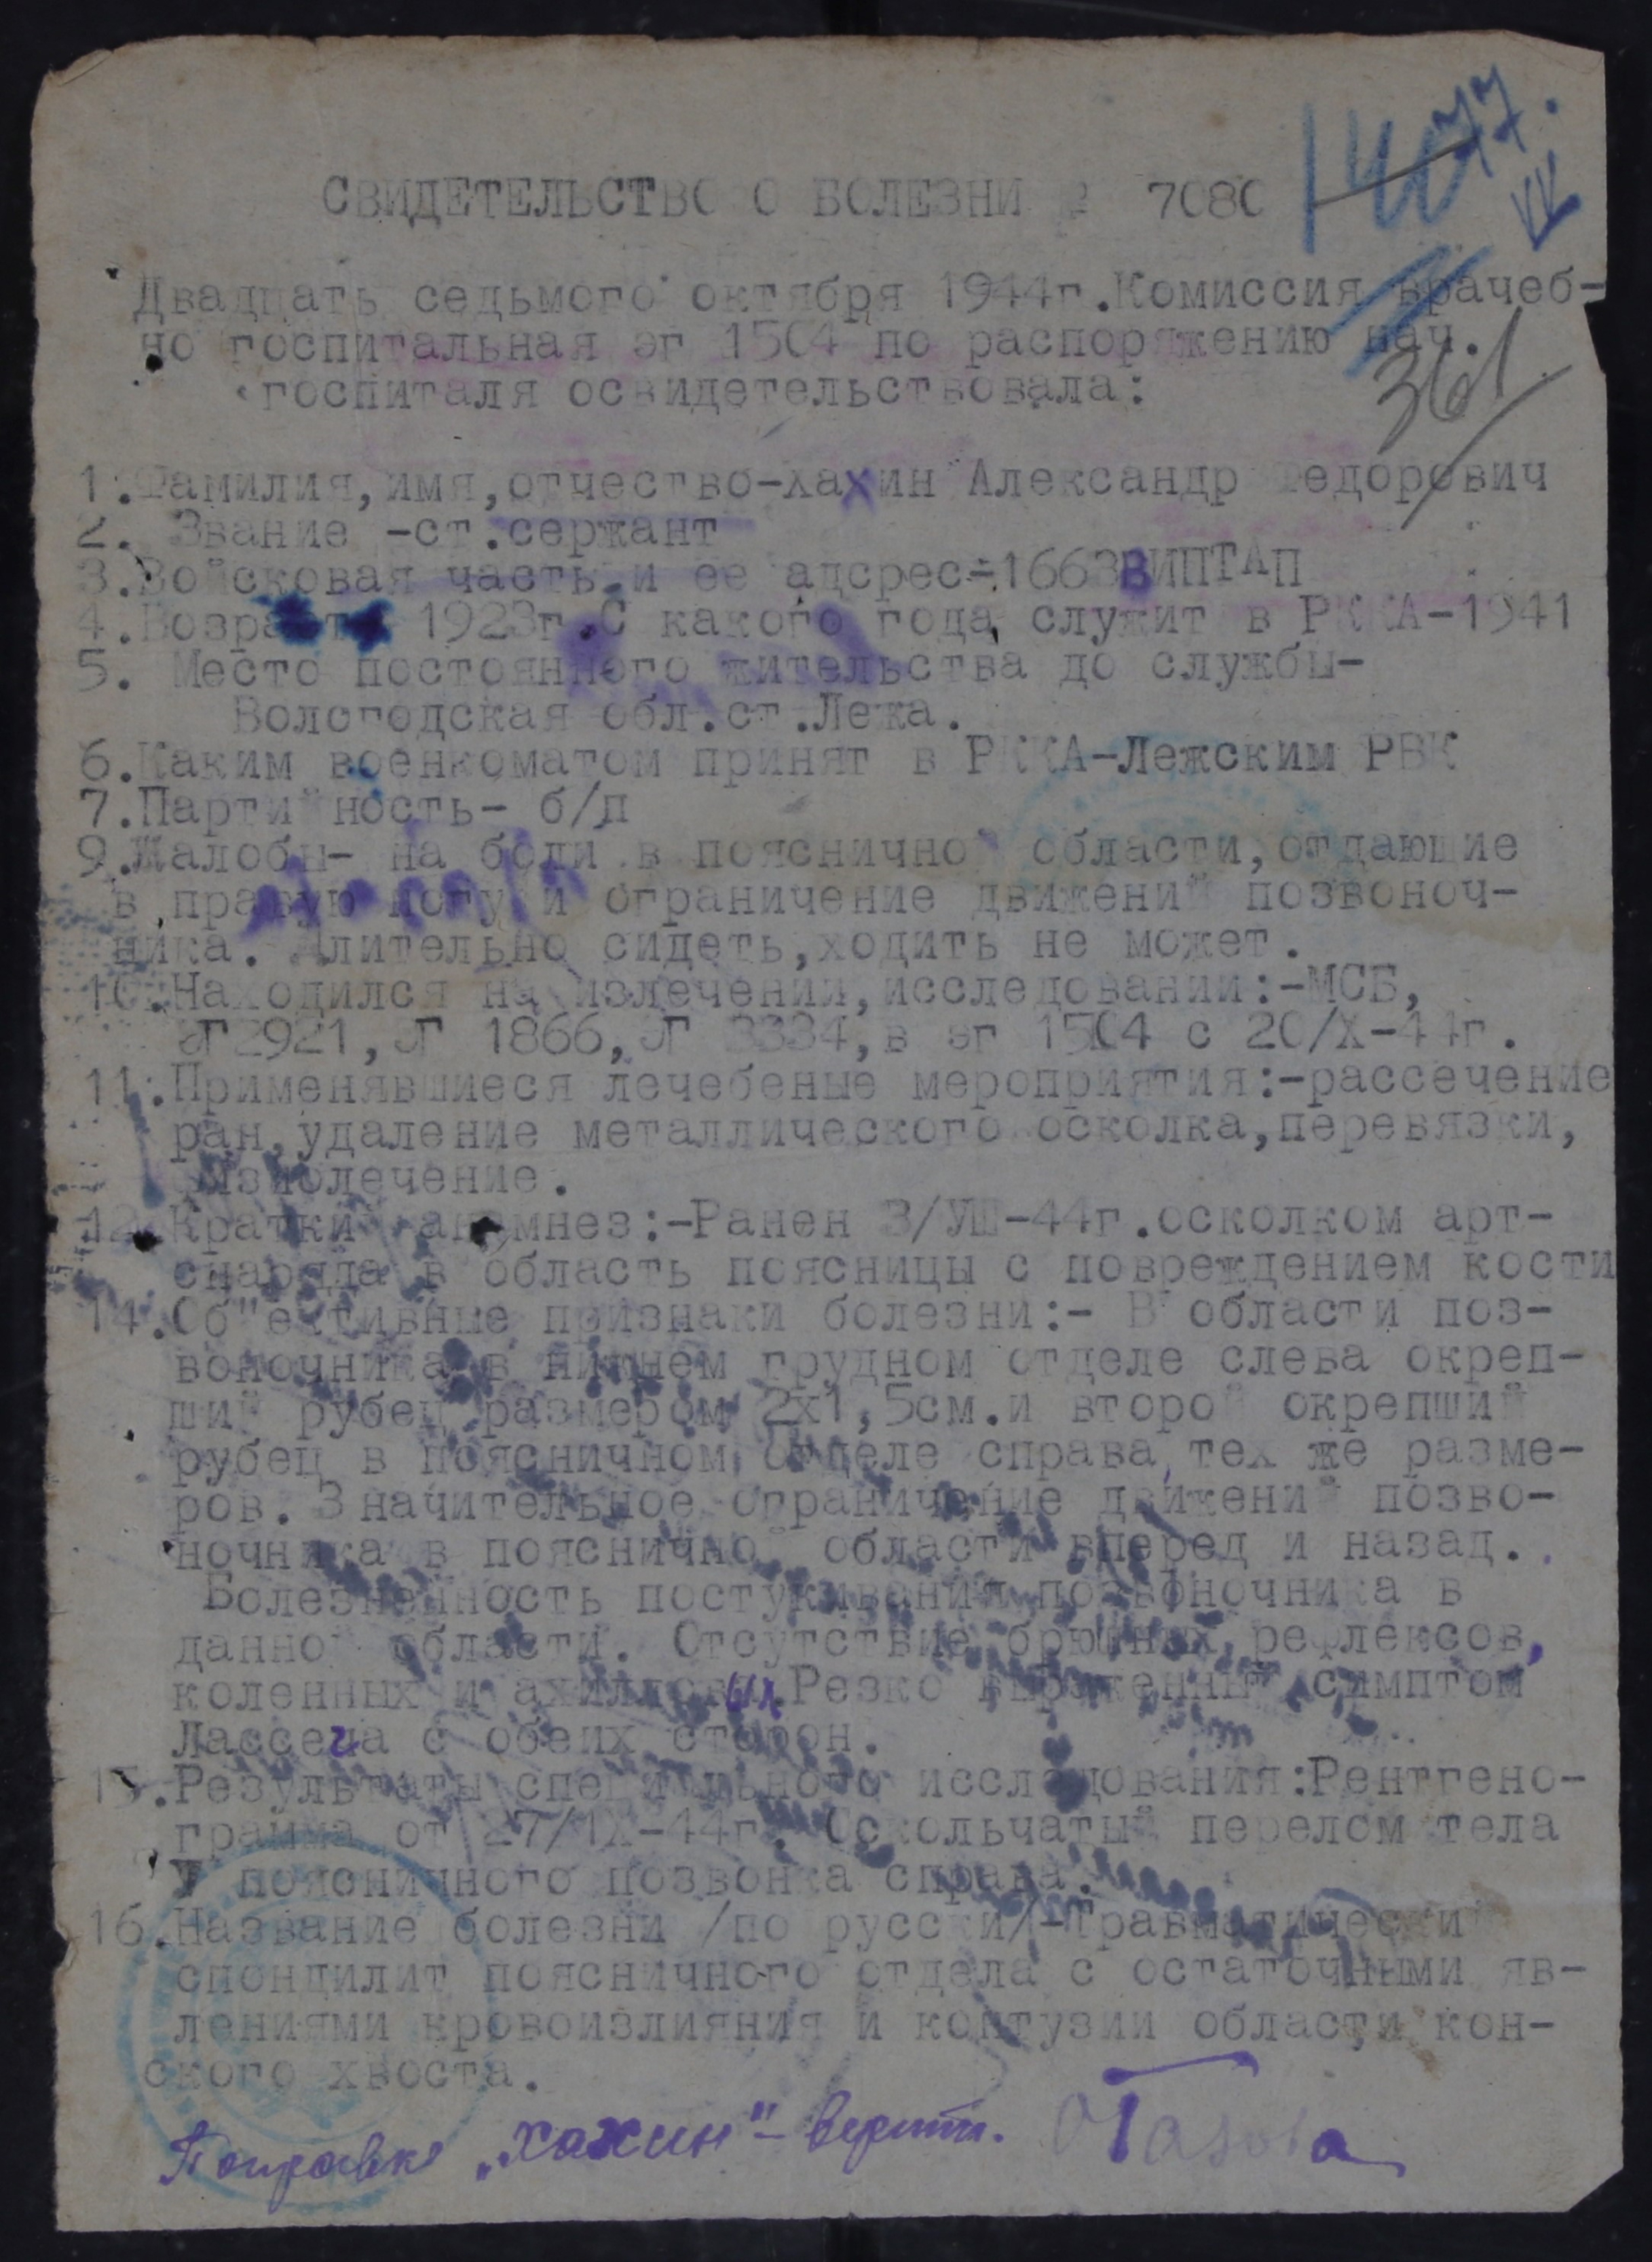 1407
77.
СВИДЕТЕЛЬСТВО О БОЛЕЗНИ № 7080
Двадцать седьмого октября 1944г.Комиссия врачеб-
но госпитальная эг 1504 по распоряжению нач.
госпиталя освидетельствовала:
361
1.Фамилия,имя,отчество-Хахин Александр Федорович
2. Звание -ст.сержант
3.Войсковая часть и ее адсрес-1663ВИПТАП
4.Возраст 1923г.С какого года служит в РККА-1941
5. Место постоянного жительства до службы-
Вологодская обл.ст.Лежа.
6.Каким военкоматом принят в РККА-Лежским РВК
7.Партийность- б/п
9.Жалобы- на боли в поясничной области,отдающие
в правую ногу и ограничение движений позвоноч-
ника. Длительно сидеть,ходить не может.
10.Находился на излечении,исследовании:-МСБ,
ЭГ2921, ЭГ 1866, ЭГ 3334,в эг 1504 с 20/Х-44г.
11.Применявшиеся лечебеные мероприятия:-рассечение
ран,удаление металлического осколка,перевязки,
физиолечение.
12.Краткий анамнез:-Ранен 3/УШ-44г.осколком арт-
снаряда в область поясницы с повреждением кости
14.Об"ективные признаки болезни:- В области поз-
воночника в нижнем грудном отделе слева окреп-
ший рубец размером 2х1,5см.и второй окрепший
рубец в поясничном отделе справа тех же разме-
ров. Значительное ограничение движений позво-
ночника в поясничной области вперед и назад.
Болезненность постукивания позвоночника в
данной области. Отсутствие брюшных рефлексов,
коленных и ахилловых.Резко выраженный симптом
Лассега с обеих сторон.
15.Результаты специального исследования:Рентгено-
грамма от 27/1Х-44г. Оскольчатый перелом тела
У поясничного позвонка справа.
16.Название болезни /по русски/-Травматический
спондилит поясничного отдела с остаточными яв-
лениями кровоизлияния и контузии области кон-
ского хвоста.
Поправке „Хахин"- верить.